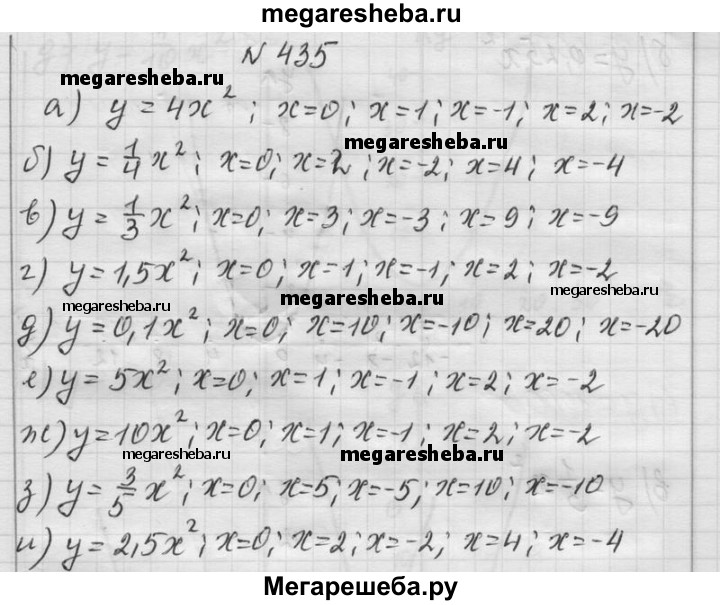 megaresheba.ru
N 435
megaresheba.ru
а) y = 4x²; x=0; x=1; x=-1; x=2; x=-2
megaresheba.ru
б) y = 1/4 x²; x=0; x=2; x=-2; x=4; x=-4
megaresheba.ru
в) y = 1/3 x²; x=0; x=3; x=-3; x=9; x=-9
г) y = 1,5x²; x=0; x=1; x=-1; x=2; x=-2
megaresheba.ru megaresheba.ru megaresheba.ru
д) y = 0,1x²; x=0; x=10; x=-10; x=20; x=-20
е) y = 5x²; x=0; x=1; x=-1; x=2; x=-2
ж) y = 10x²; x=0; x=1; x=-1; x=2; x=-2
megaresheba.ru megaresheba.ru
з) y = 3/5 x²; x=0; x=5; x=-5; x=10; x=-10
megaresheba.ru
и) y = 2,5x²; x=0; x=2; x=-2; x=4; x=-4
Мегарешеба.ру